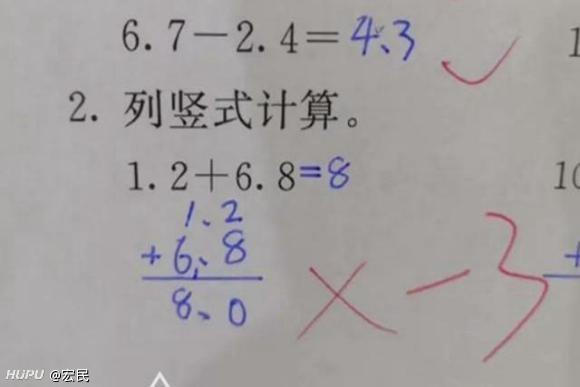 6.7-2.4=4.3
1
2. 列竖式计算。
1.2+6.8=8
10
1.2
+6.8
+
8.0
× -3
HUPU @宏民